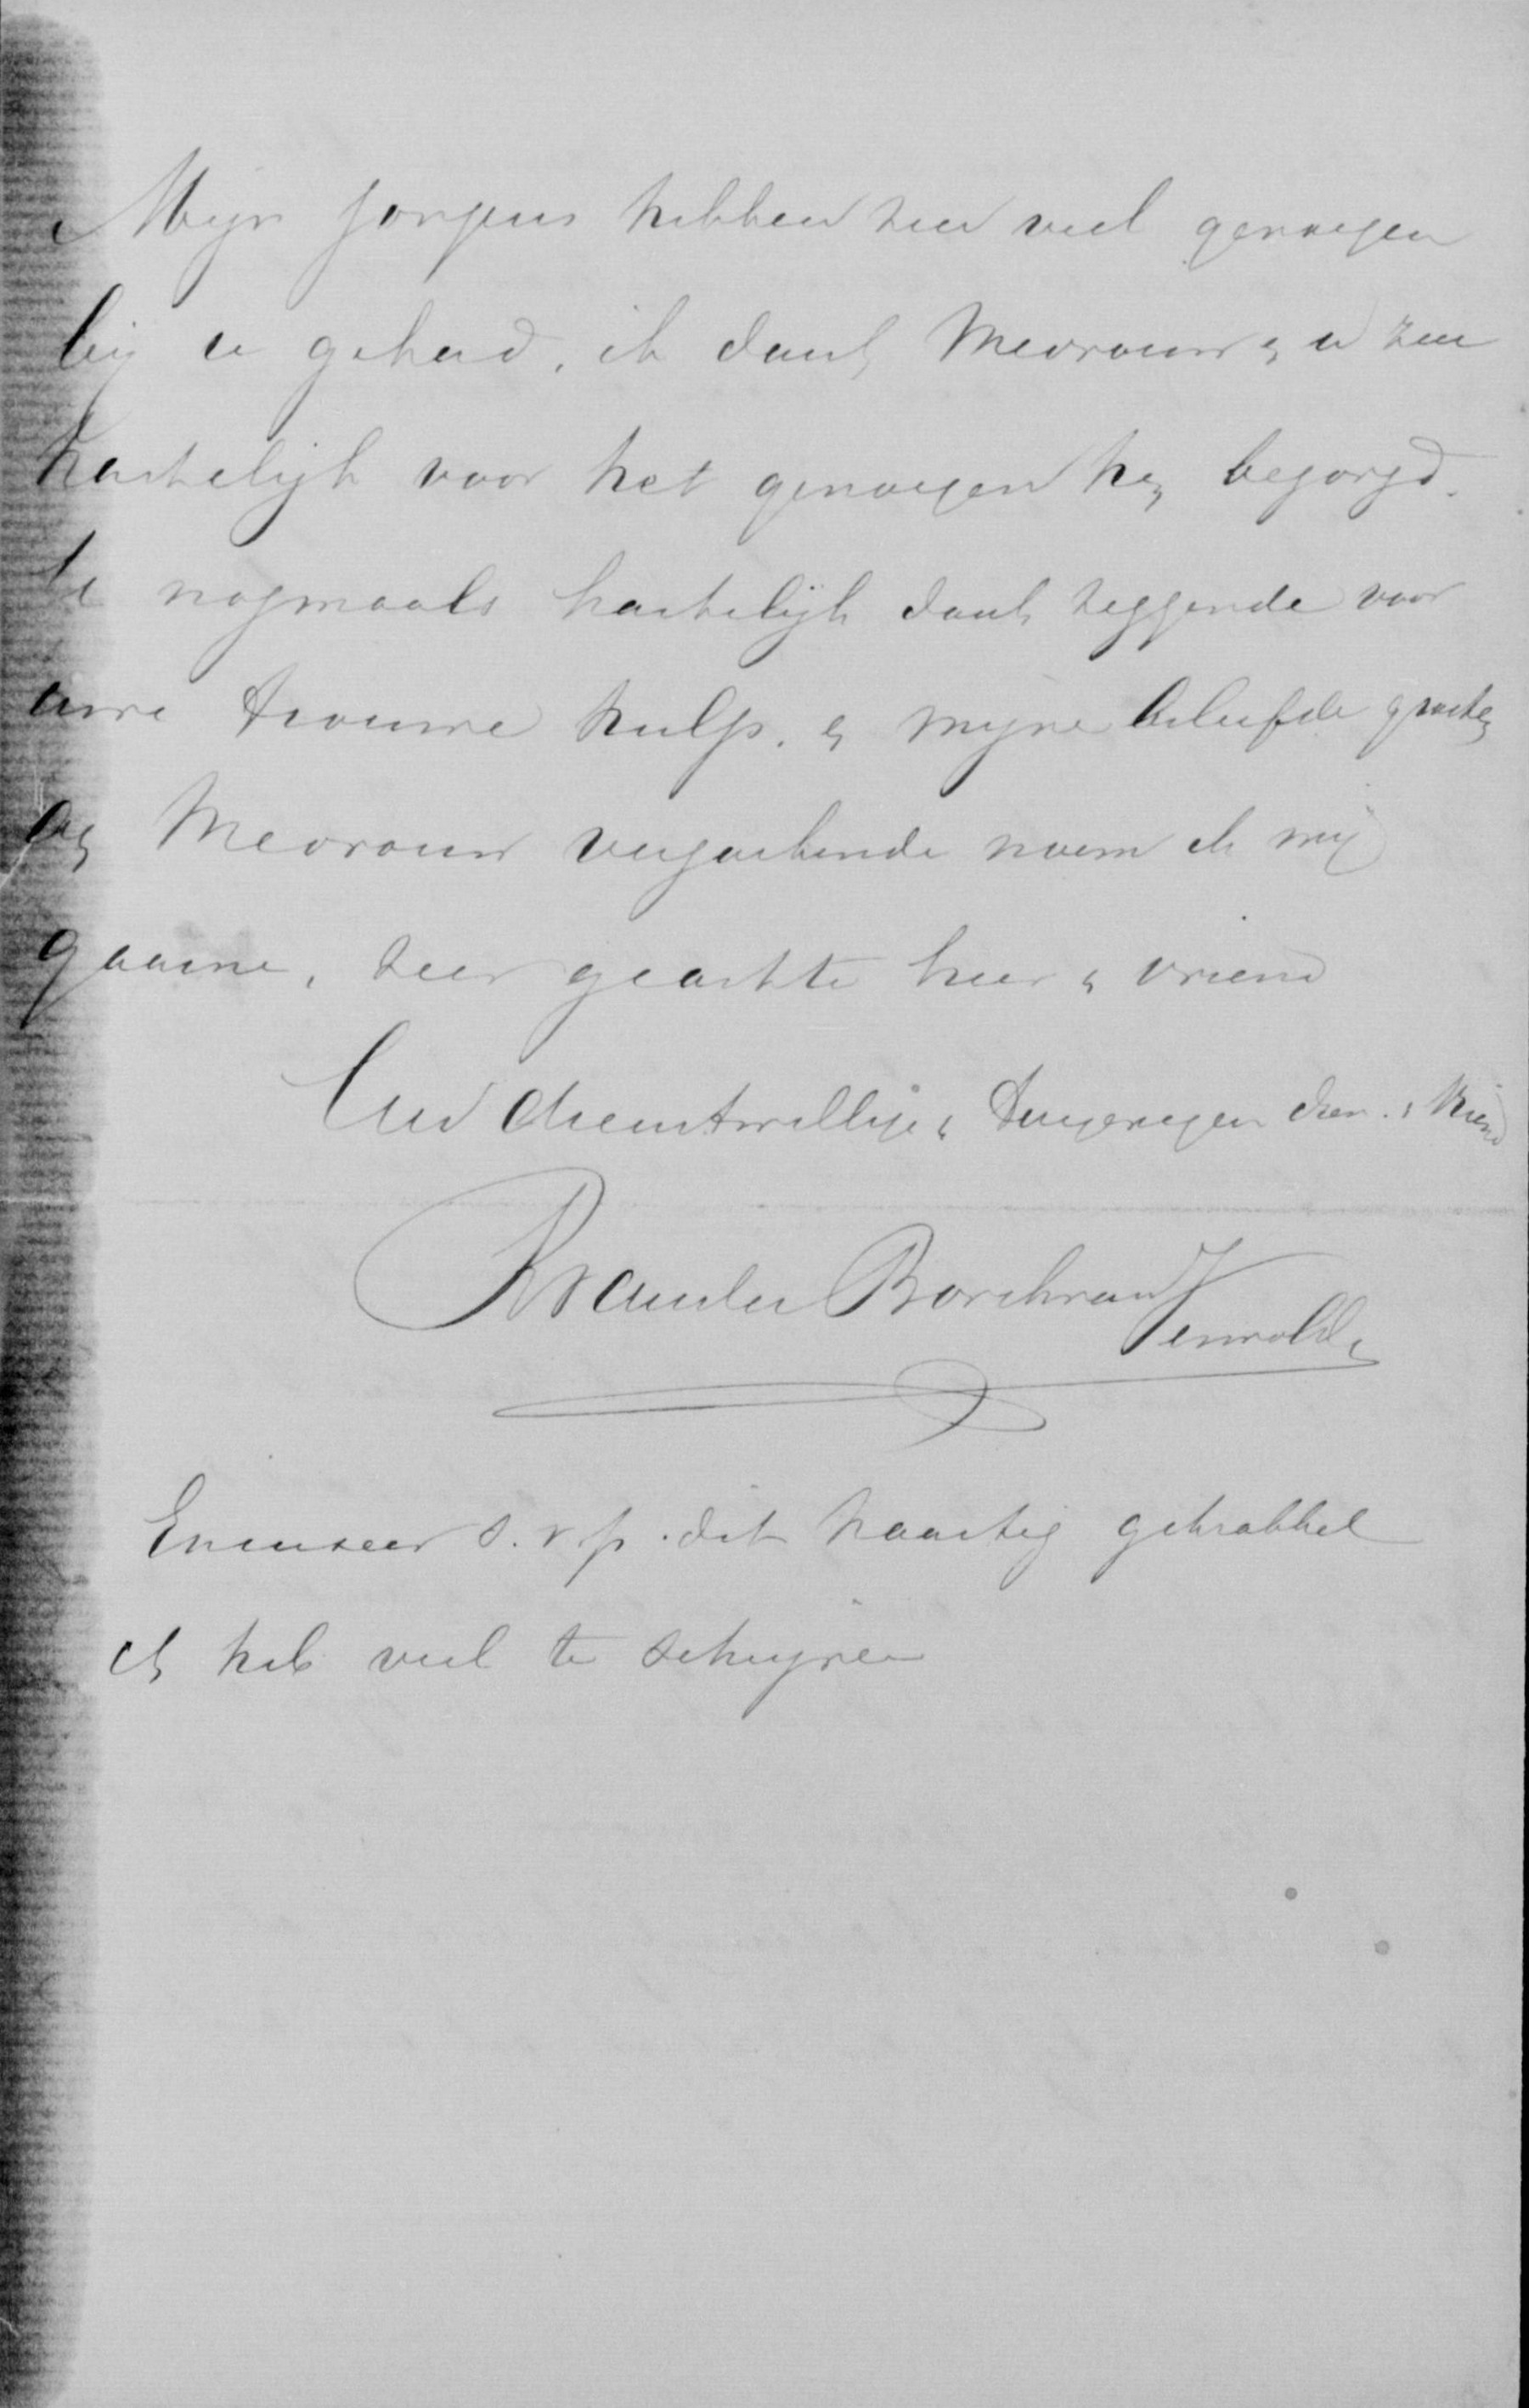 Mijn jongens hebben zeer veel genoegen
bij u gehad, ik dank Mevrouw en u zeer
hartelijk voor het genoegen hen bezorgd.
U nogmaals hartelijk dank zeggende voor
uwe trouwe hulp. en mijne beleefde groeten
aan Mevrouw verzoekende noem ik mij
gaarne, zeer geachte heer en vriend
Uw dienstwillige en toegenegen dien. en vriend
Excuseer s.v.p. dit haastig gekrabbel
ik heb veel te schrijven